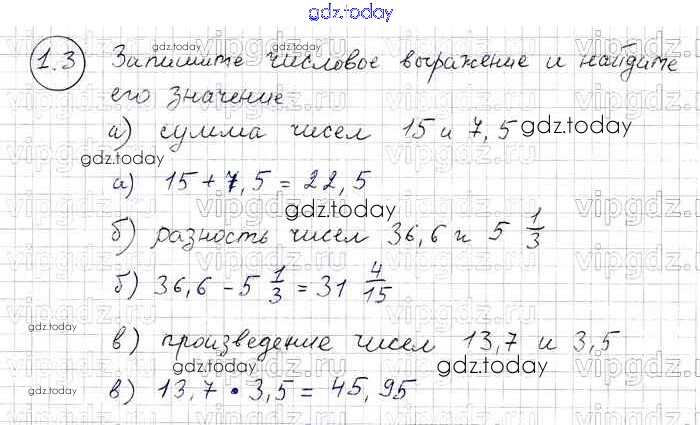 gdz.today
1.3 Запишите числовое выражение и найдите
gdz.today gdz.today
его значение
а) сумма чисел 15 и 7,5 gdz.today
gdz.today
а) 15 + 7,5 = 22,5
gdz.today
б) разность чисел 36,6 и 5 1/3
б) 36,6 - 5 1/3 = 31 4/15
gdz.today
в) произведение чисел 13,7 и 3,5
gdz.today
в) 13,7 • 3,5 = 45,95
gdz.today
vipgdz.ru